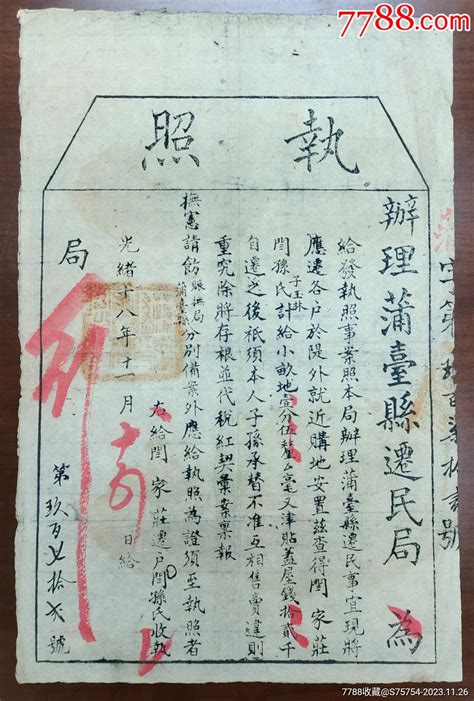 7788.com
執照
辦理蒲臺縣遷民局 為
給發執照事案照本局辦理蒲臺縣遷民事宜現將
應遷各戶於隄外就近購地安置茲查得閆家莊
閆孫氏子玉琳計給小畝地壹分伍釐 毫又津貼蓋屋錢拾貳千
自遷之後祇須本人子孫承替不准互相售賣違則
重究除將存根並代稅紅契彙案稟報
撫憲請飭賑撫局蒲臺縣分別備案外應給執照為證須至執照者
右給閆家莊遷戶閆孫氏收執
光緒十八年十一月 日給
局
第玖百七拾 號
7788收藏@S75754-2023.11.26